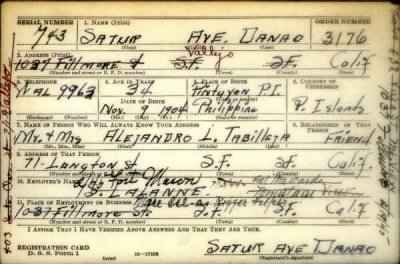 SERIAL NUMBER 1. NAME (Print) ORDER NUMBER
743 SATUR AVE. DANAO 3176
(First) (Middle) (Last)
2. ADDRESS (Print) Vallejo
1037 Fillmore St S.F. S.F. Calif
(Number and street or R. F. D. number) (Town) (County) (State)
3. TELEPHONE 4. AGE IN YEARS 5. PLACE OF BIRTH 6. COUNTRY OF CITIZENSHIP
WAL 9963 34 Pintuyan P.I.
DATE OF BIRTH
Nov 9 1904 Philippine P. Islands
(Mo.) (Day) (Yr.)
7. NAME OF PERSON WHO WILL ALWAYS KNOW YOUR ADDRESS 8. RELATIONSHIP OF THAT PERSON
Mr. & Mrs ALEJANDRO L. TABILLEJA FRIEND
(Mr., Mrs., Miss) (First) (Middle) (Last)
9. ADDRESS OF THAT PERSON
Langton St S.F. S.F. Calif
(Number and street or R. F. D. number) (Town) (County) (State)
10. EMPLOYER'S NAME Fort Mason
11. PLACE OF EMPLOYMENT OR BUSINESS
1037 Fillmore St. S.F. S.F. Calif
(Number and street or R. F. D. number) (Town) (County) (State)
I AFFIRM THAT I HAVE VERIFIED ABOVE ANSWERS AND THAT THEY ARE TRUE.
REGISTRATION CARD
D. S. S. Form 1 16-17105 Satur Ave Danao
(Registrant's signature)